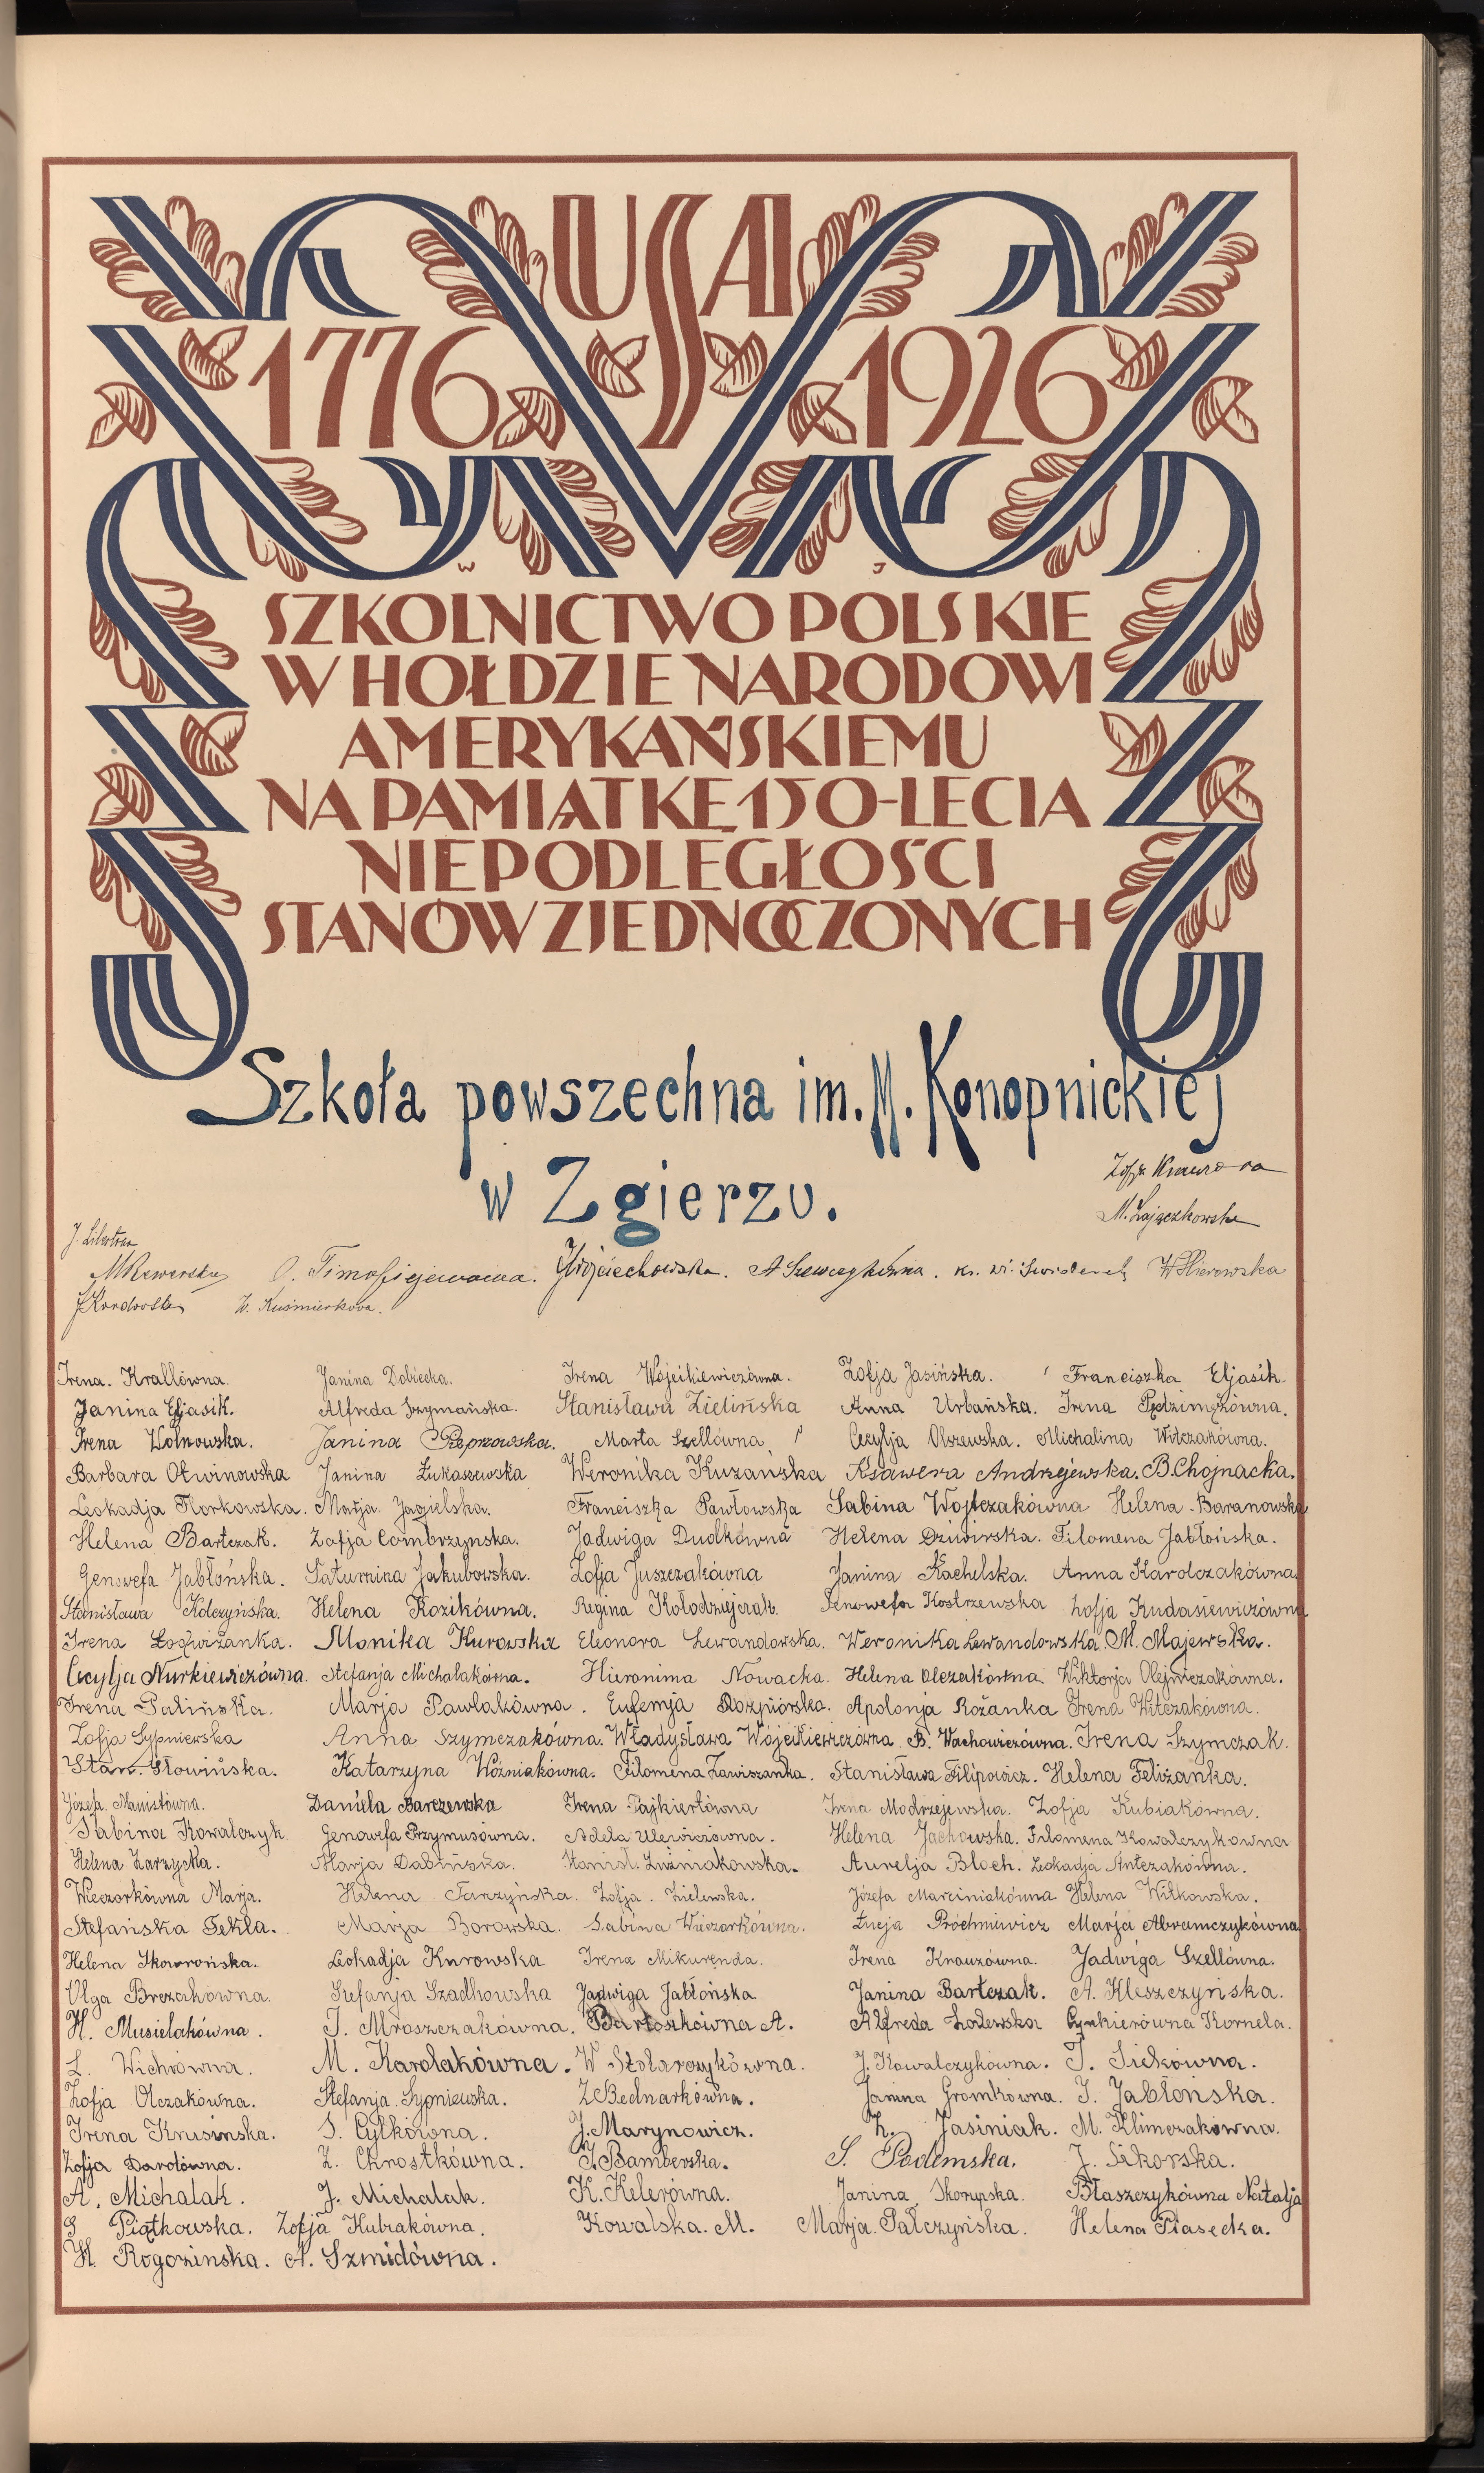 USA
1776 1926
W J
SZKOLNICTWO POLSKIE
W HOŁDZIE NARODOWI
AMERYKAŃSKIEMU
NA PAMIĄTKĘ 150-LECIA
NIEPODLEGŁOŚCI
STANÓW ZJEDNOCZONYCH
Szkoła powszechna im. M. Konopnickiej
w Zgierzu.
M. Zajączkowska
O. Timofiejewowa. Wojciechowska. A Szewczykówna. W. Kuśmierkowa.
Irena. Krallówna. Janina Dobiecka. Irena Wójcikiewiczówna. Zofja Jasińska. Franciszka Eljasik.
Janina Eljasik. Alfreda Szymańska. Stanisława Zielińska Anna Urbańska. Irena Pędzimężówna.
Irena Wolnowska. Janina Marta Szellówna Cecylja Olszewska. Michalina Witczakówna.
Barbara Otwinowska Janina Łukaszewska Weronika Kuzańska Ksawera Andrzejewska. B. Chojnacka.
Leokadja Florkowska. Marja Jagielska. Franciszka Pawłowska Sabina Wojtczakówna Helena Baranowska
Helena Bartczak. Zofja Combrzyńska. Jadwiga Dudkówna Helena Filomena Jabłońska.
Genowefa Jabłońska. Saturnina Jakubowska. Zofja Juszczakówna Janina Kachelska. Anna Karolczakówna.
Stanisława Kolczyńska. Helena Kozikówna. Regina Kołodziejczak. Genowefa Kostrzewska Zofja Kudasiewiczówna
Irena Monika Kurowska Eleonora Lewandowska. Weronika Lewandowska. M. Majewska.
Cecylja Nurkiewiczówna. Stefanja Michalakówna. Hieronima Nowacka. Helena Olczakówna. Wiktorja Olejniczakówna.
Irena Palińska. Marja Pawlakówna. Eufemja Rozpiórska. Apolonja Rożanka Irena Witczakówna.
Zofja Sypniewska Anna Szymczakówna. Władysława Wójcikiewiczówna. B. Wachowiczówna. Irena Szymczak.
Stan. Słowińska. Katarzyna Woźniakówna. Filomena Zawiszanka. Stanisława Filipowicz. Helena Feliżanka.
Józefa Daniela Barczewska Irena Pajkiertówna Irena Modrzejewska. Zofja Kubiakówna.
Sabina Kowalczyk Genowefa Przymusówna. Adela Ulewiczówna. Helena Jachowska. Filomena Kowalczykówna
Helena Zarzycka. Marja Dabińska. Stanisł. Luźniakowska. Aurelja Bloch. Leokadja Antczakówna.
Wieczorkówna Marja. Helena Tarzyńska. Zofja. Zielewska. Józefa Marciniakówna Helena Witkowska.
Stefańska Tekla. Marja Borowska. Sabina Wieczorkówna. Łucja Próchniewicz Marja Abramczykówna.
Helena Skowrońska. Leokadja Kurowska Irena Mikurenda. Irena Krauzówna. Jadwiga Szellówna.
Olga Brezakówna. Szadkowska Jadwiga Jabłońska Janina Bartczak. A. Kleszczyńska.
H. Musielakówna. J. Mroszczakówna. Bartoszkówna A. Alfreda Cynkierówna Kornela.
L. Wichrówna. M. Karolakówna. W Stolarczykówna. J. Kowalczykówna. J. Sickówna.
Zofja Olczakówna. Stefanja. Sypniewska. Z Bednarkówna. Janina Gromkówna. J. Jabłońska.
Irena Krusińska. S. Cylkówna. J. Marynowicz. Z. Jasiniak. M. Klimczakówna.
Zofja Darolówna. Z. Chrostkówna. J. Bamberska. S. Podemska. J. Sikorska.
A. Michalak. J. Michalak. K. Kelerówna. Janina Skorupska. Błaszczykówna Natalja
Piątkowska. Zofja Kubiakówna. Kowalska. M. Marja Pałczyńska. Helena Piasecka.
H. Rogozinska. A. Szmidówna.